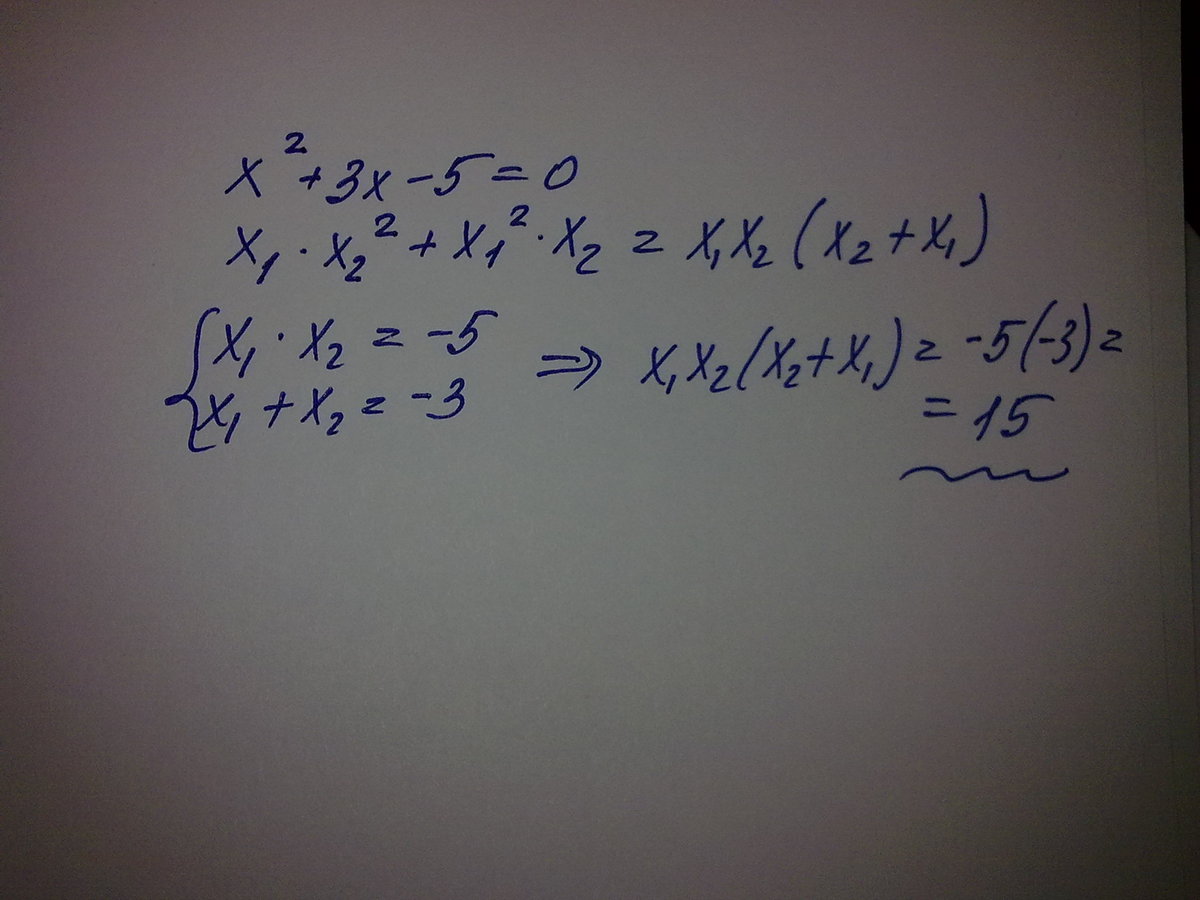 x² + 3x - 5 = 0
x₁ · x₂² + x₁² · x₂ = x₁x₂(x₂ + x₁)
{ x₁ · x₂ = -5
x₁ + x₂ = -3
⇒ x₁x₂(x₂ + x₁) = -5(-3) =
= 15